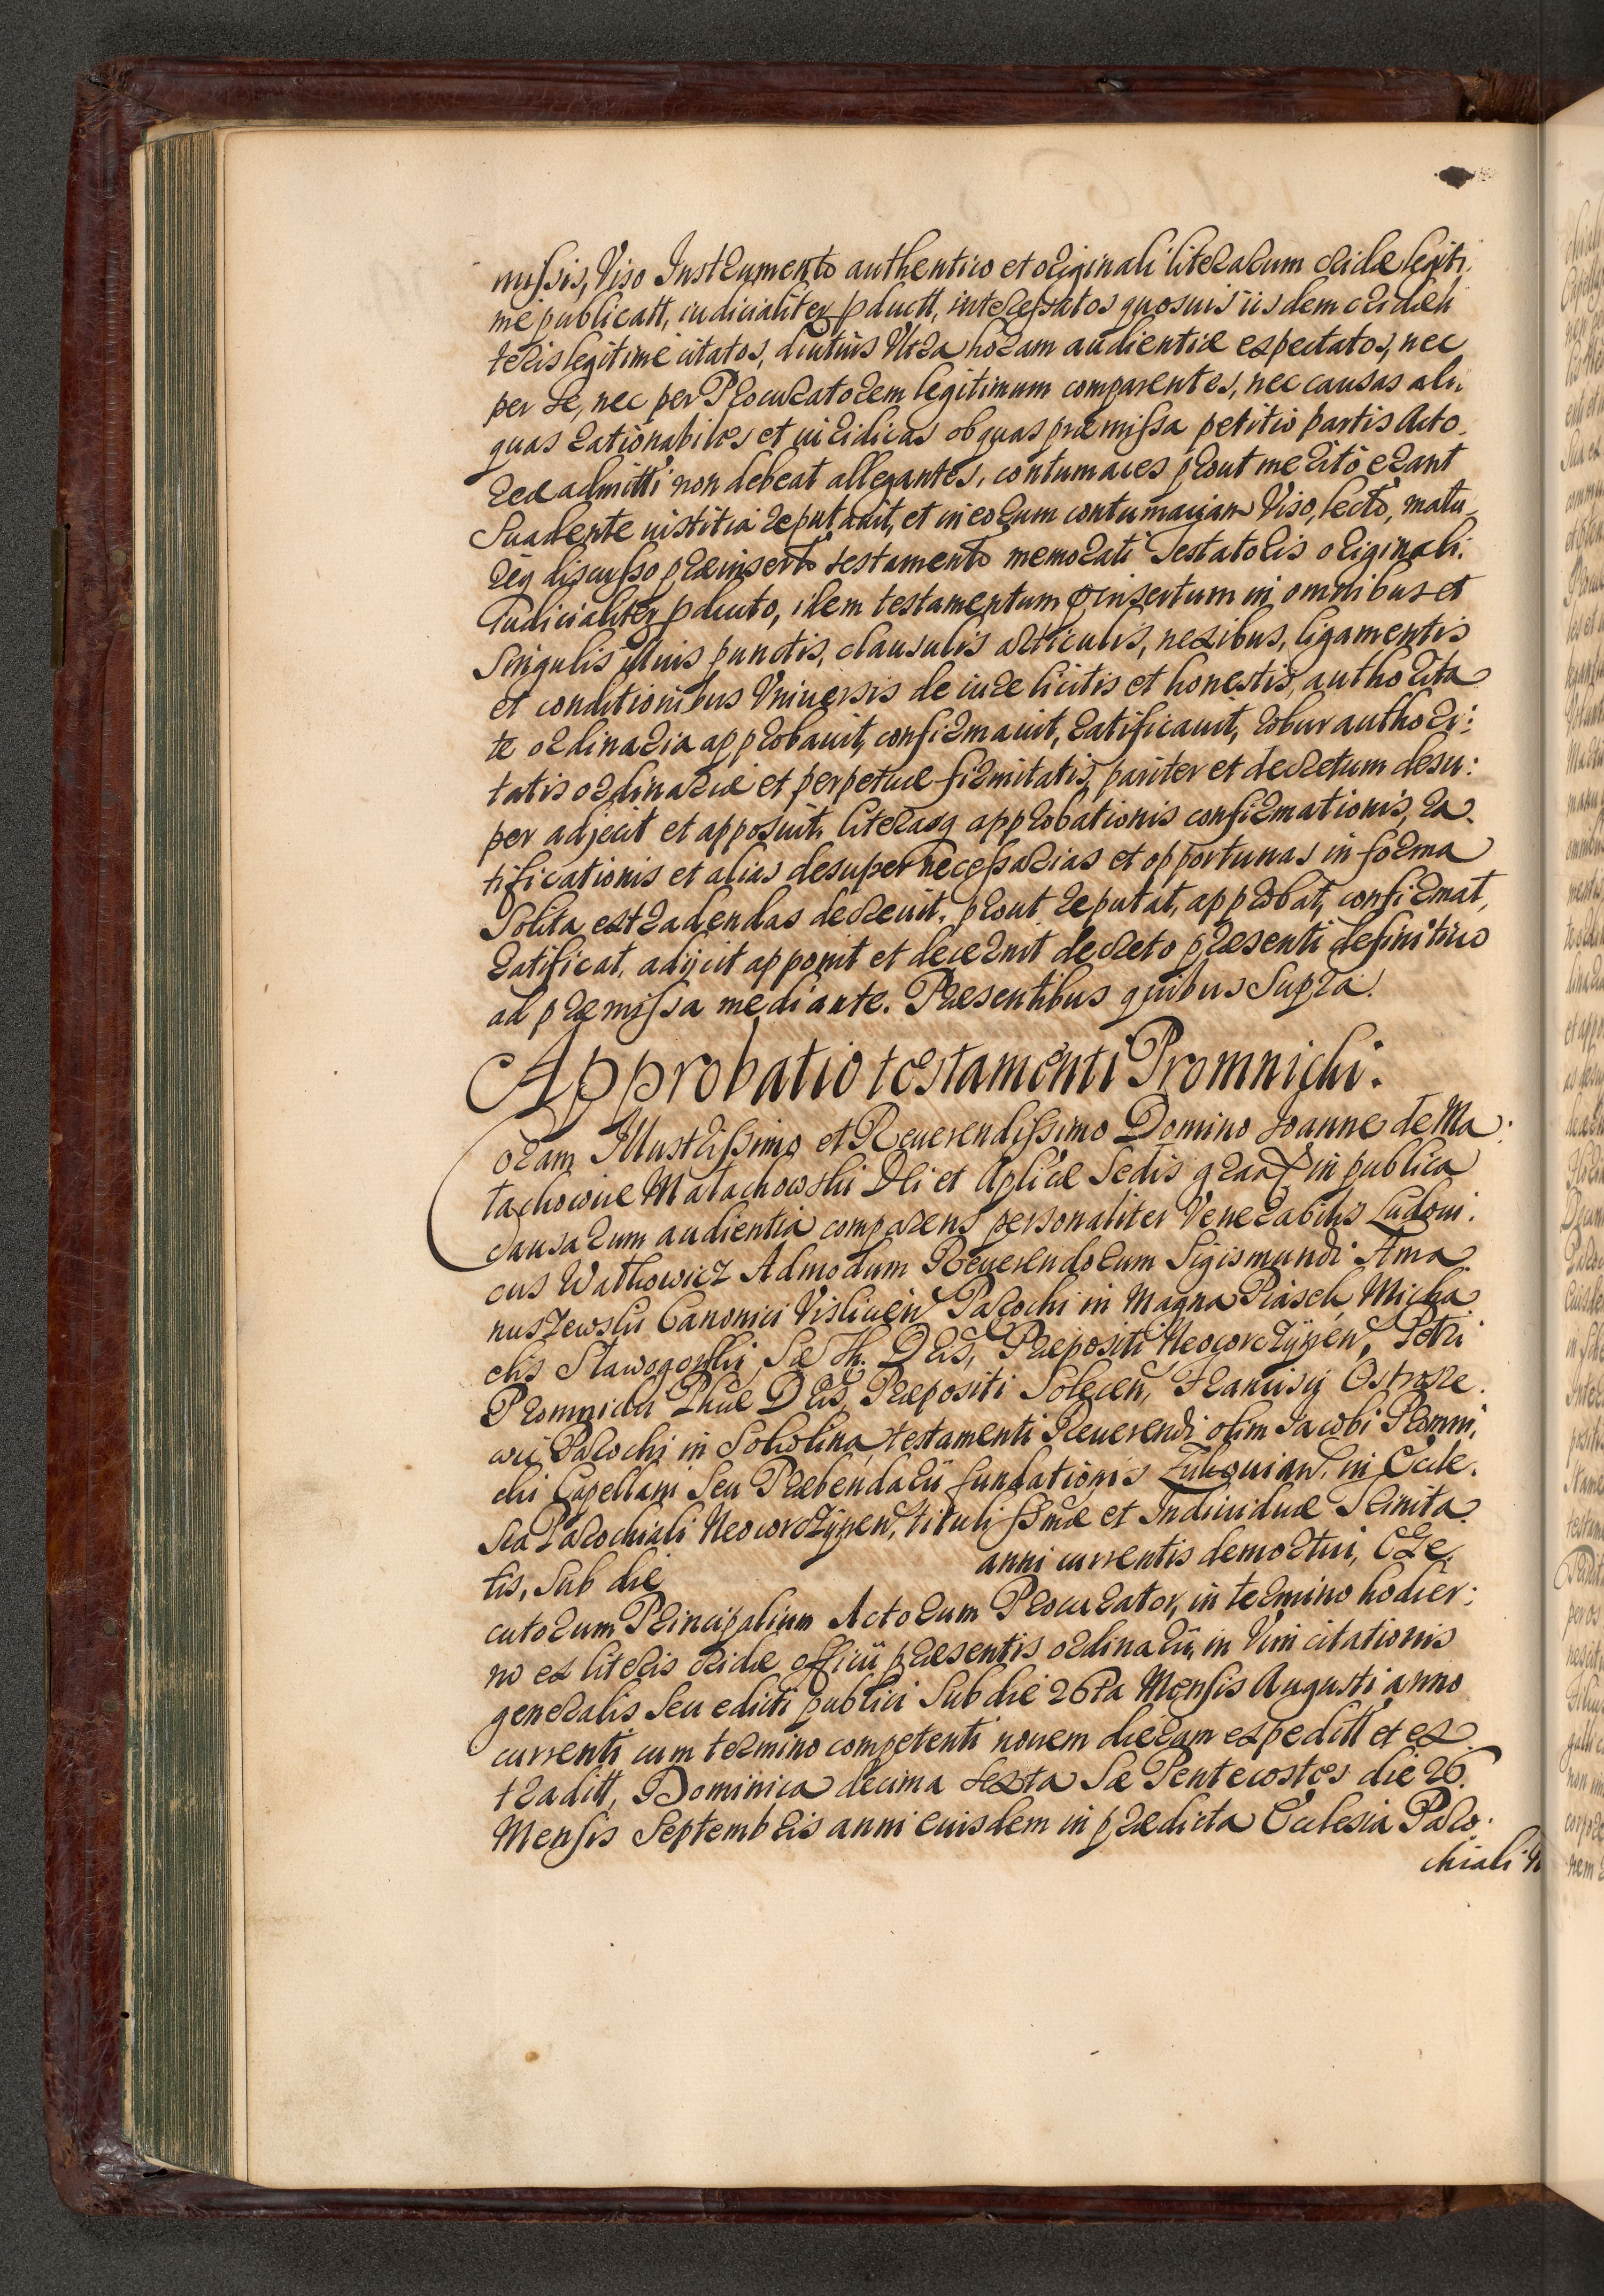 missis, Viso Instrumento authentico et originali literarum cridae legiti,
me publicatt, iudicialiter pductt, interessatos quosuis iisdem cridae li
teris legitime citatos, diutius Vltra horam audientiae expectatos, nec
per se, nec per Procuratorem legitimum comparentes, nec causas ali,
quas rationabiles et iuridicas ob quas praemissa petitio partis Acto,
reae admitti non debeat allegantes, contumaces prout merito erant
Suadente iustitia reputauit, et in eorum contumaciam Viso, lecto, matu,
req discusso praeinserto testamento memorati Testatoris originali.
Iudicialiter pducto, idem testamentum pinsertum in omnibus et
Singulis suis punctis, clausulis articulis, nexibus, ligamentis
et conditionibus Vniuersis de iure licitis et honestis, authorita
te ordinaria approbauit, confirmauit, ratificauit, robur authori:
tatis ordinariae et perpetuae firmitatis, pariter et decretum desu:
per adjecit et apposuit, literasq approbationis confirmationis, ra.
tificationis et alias desuper necessarias et opportunas in forma
Solita extradendas decreuit. prout reputat, approbat, confirmat,
ratificat, adijcit apponit et decernit decreto praesenti definitiuo
ad praemissa mediante. Praesentibus quibus Supra.
Approbatio testamenti Promnichi.
Coram Illustrissimo et Reuerendissimo Domino Joanne de Ma:
łachowice Małachowski Dei et Aplicae Sedis graa in publica
Causarum audientia comparens personaliter Venerabilis Ludoui.
cus Wathowicz Admodum Reuerendorum Sigismundi Ama
nuszewski Canonici Vislicen Parochi in Magna Piasek, Micha
elis Stawogorski, Sae Th. Dris, Praepositi Neocorczynen, Petri
Promnichi Phiae Dris, Praepositi Solecen, Francisci Ostrosze.
wic Parochi in Sokolina, testamenti Reuerendi olim Jacobi Promni,
chi Capellani Seu Praebendarii fundationis in Eccle.
sia Parochiali Neocorczynen, tituli SSmae et Indiuiduae Trinita
tis, Sub die anni currentis demortui, Exe.
cutorum Principalium Actorum Procurator, in termino hodier:
no ex literis cridae officii praesentis ordinarii, in Vim citationis
generalis seu edicti publici Sub die 26ta Mensis Augusti anno
currenti cum termino competenti nouem dierum expeditt et ex
traditt, Dominica decima sexta Sae Pentecostes die 26.
Mensis Septembris anni eiusdem in praedicta Ecclesia Paro.
chiali